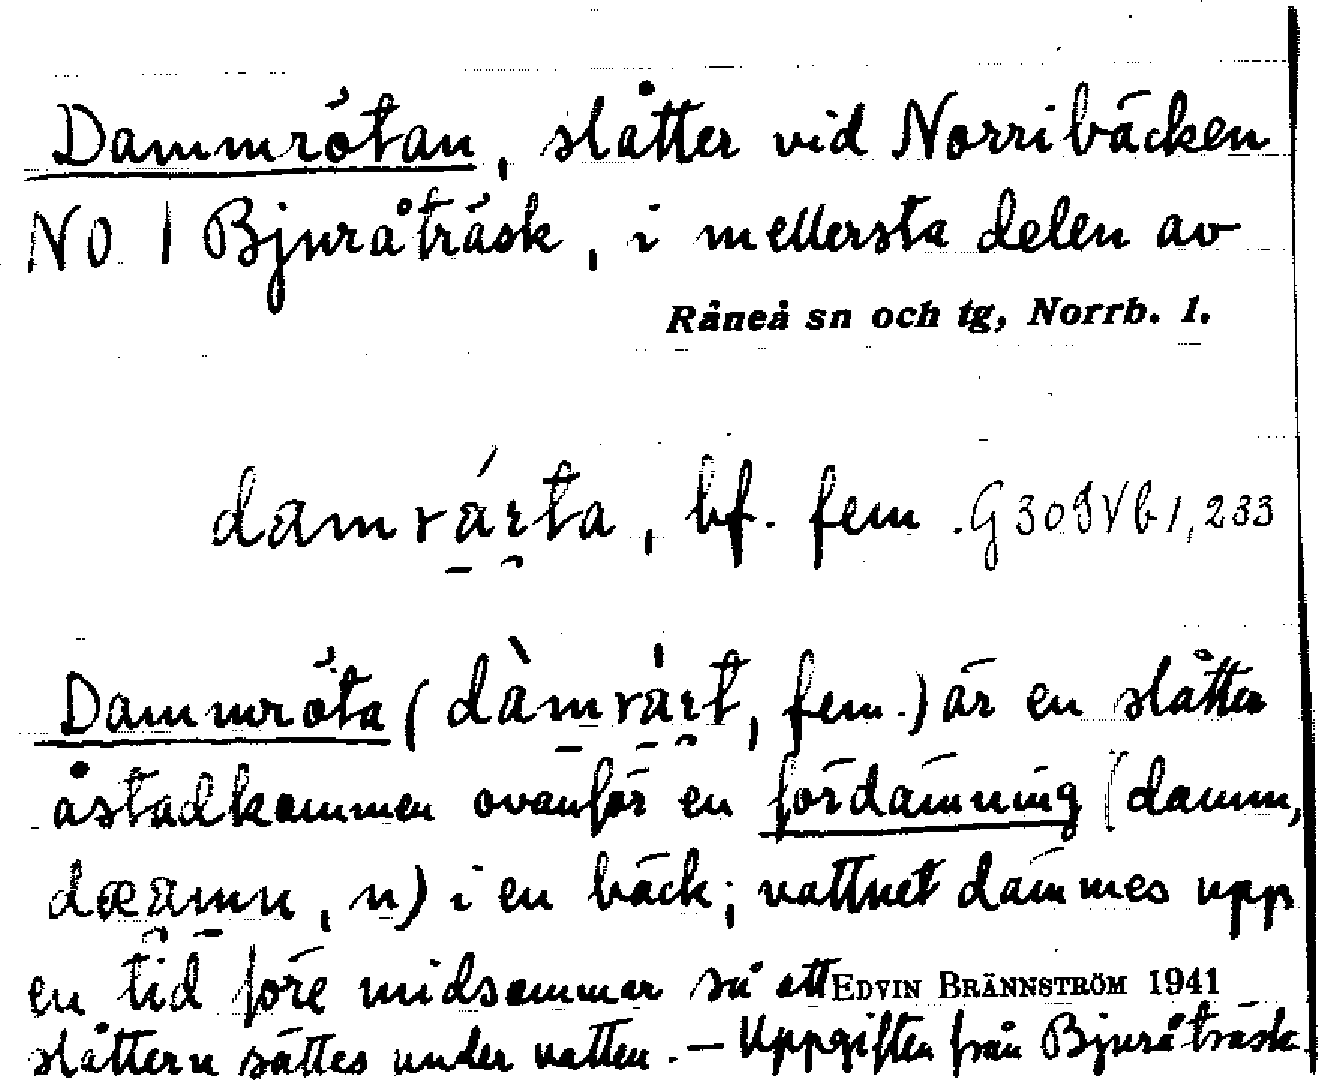 Dammrötan, slåtter vid Norribäcken
NO I Bjuråträsk, i mellersta delen av
Råneå sn och tg, Norrb. l.
damrárta, bf. fem. G 309 V b 1, 233
Dammröta (dàmrárt, fem.) är en slåtter
åstadkommen ovanför en fördämning (damm,
dæamn, n) i en bäck; vattnet dämmes upp
en tid före midsommar så att
EDVIN BRÄNNSTRÖM 1941
slåttern sättes under vatten. — Uppgiften från Bjuråträsk